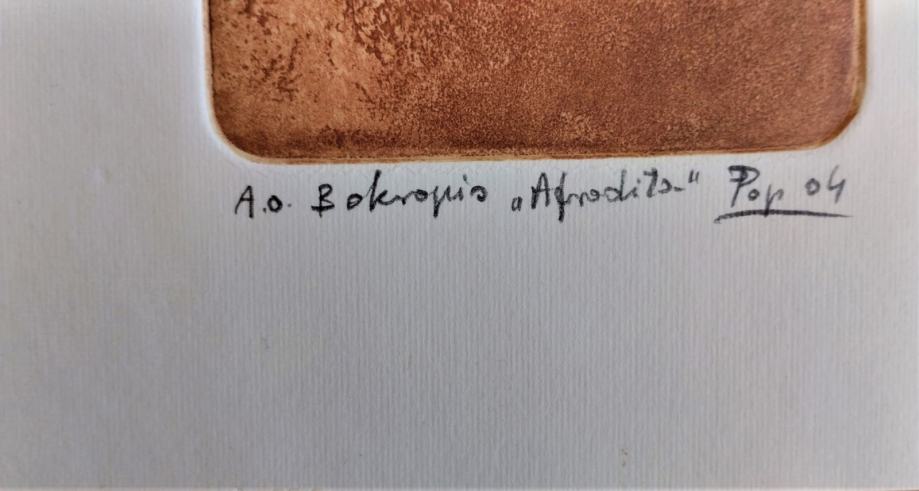 A.o. Bakropis „Afrodita“ Pop 04